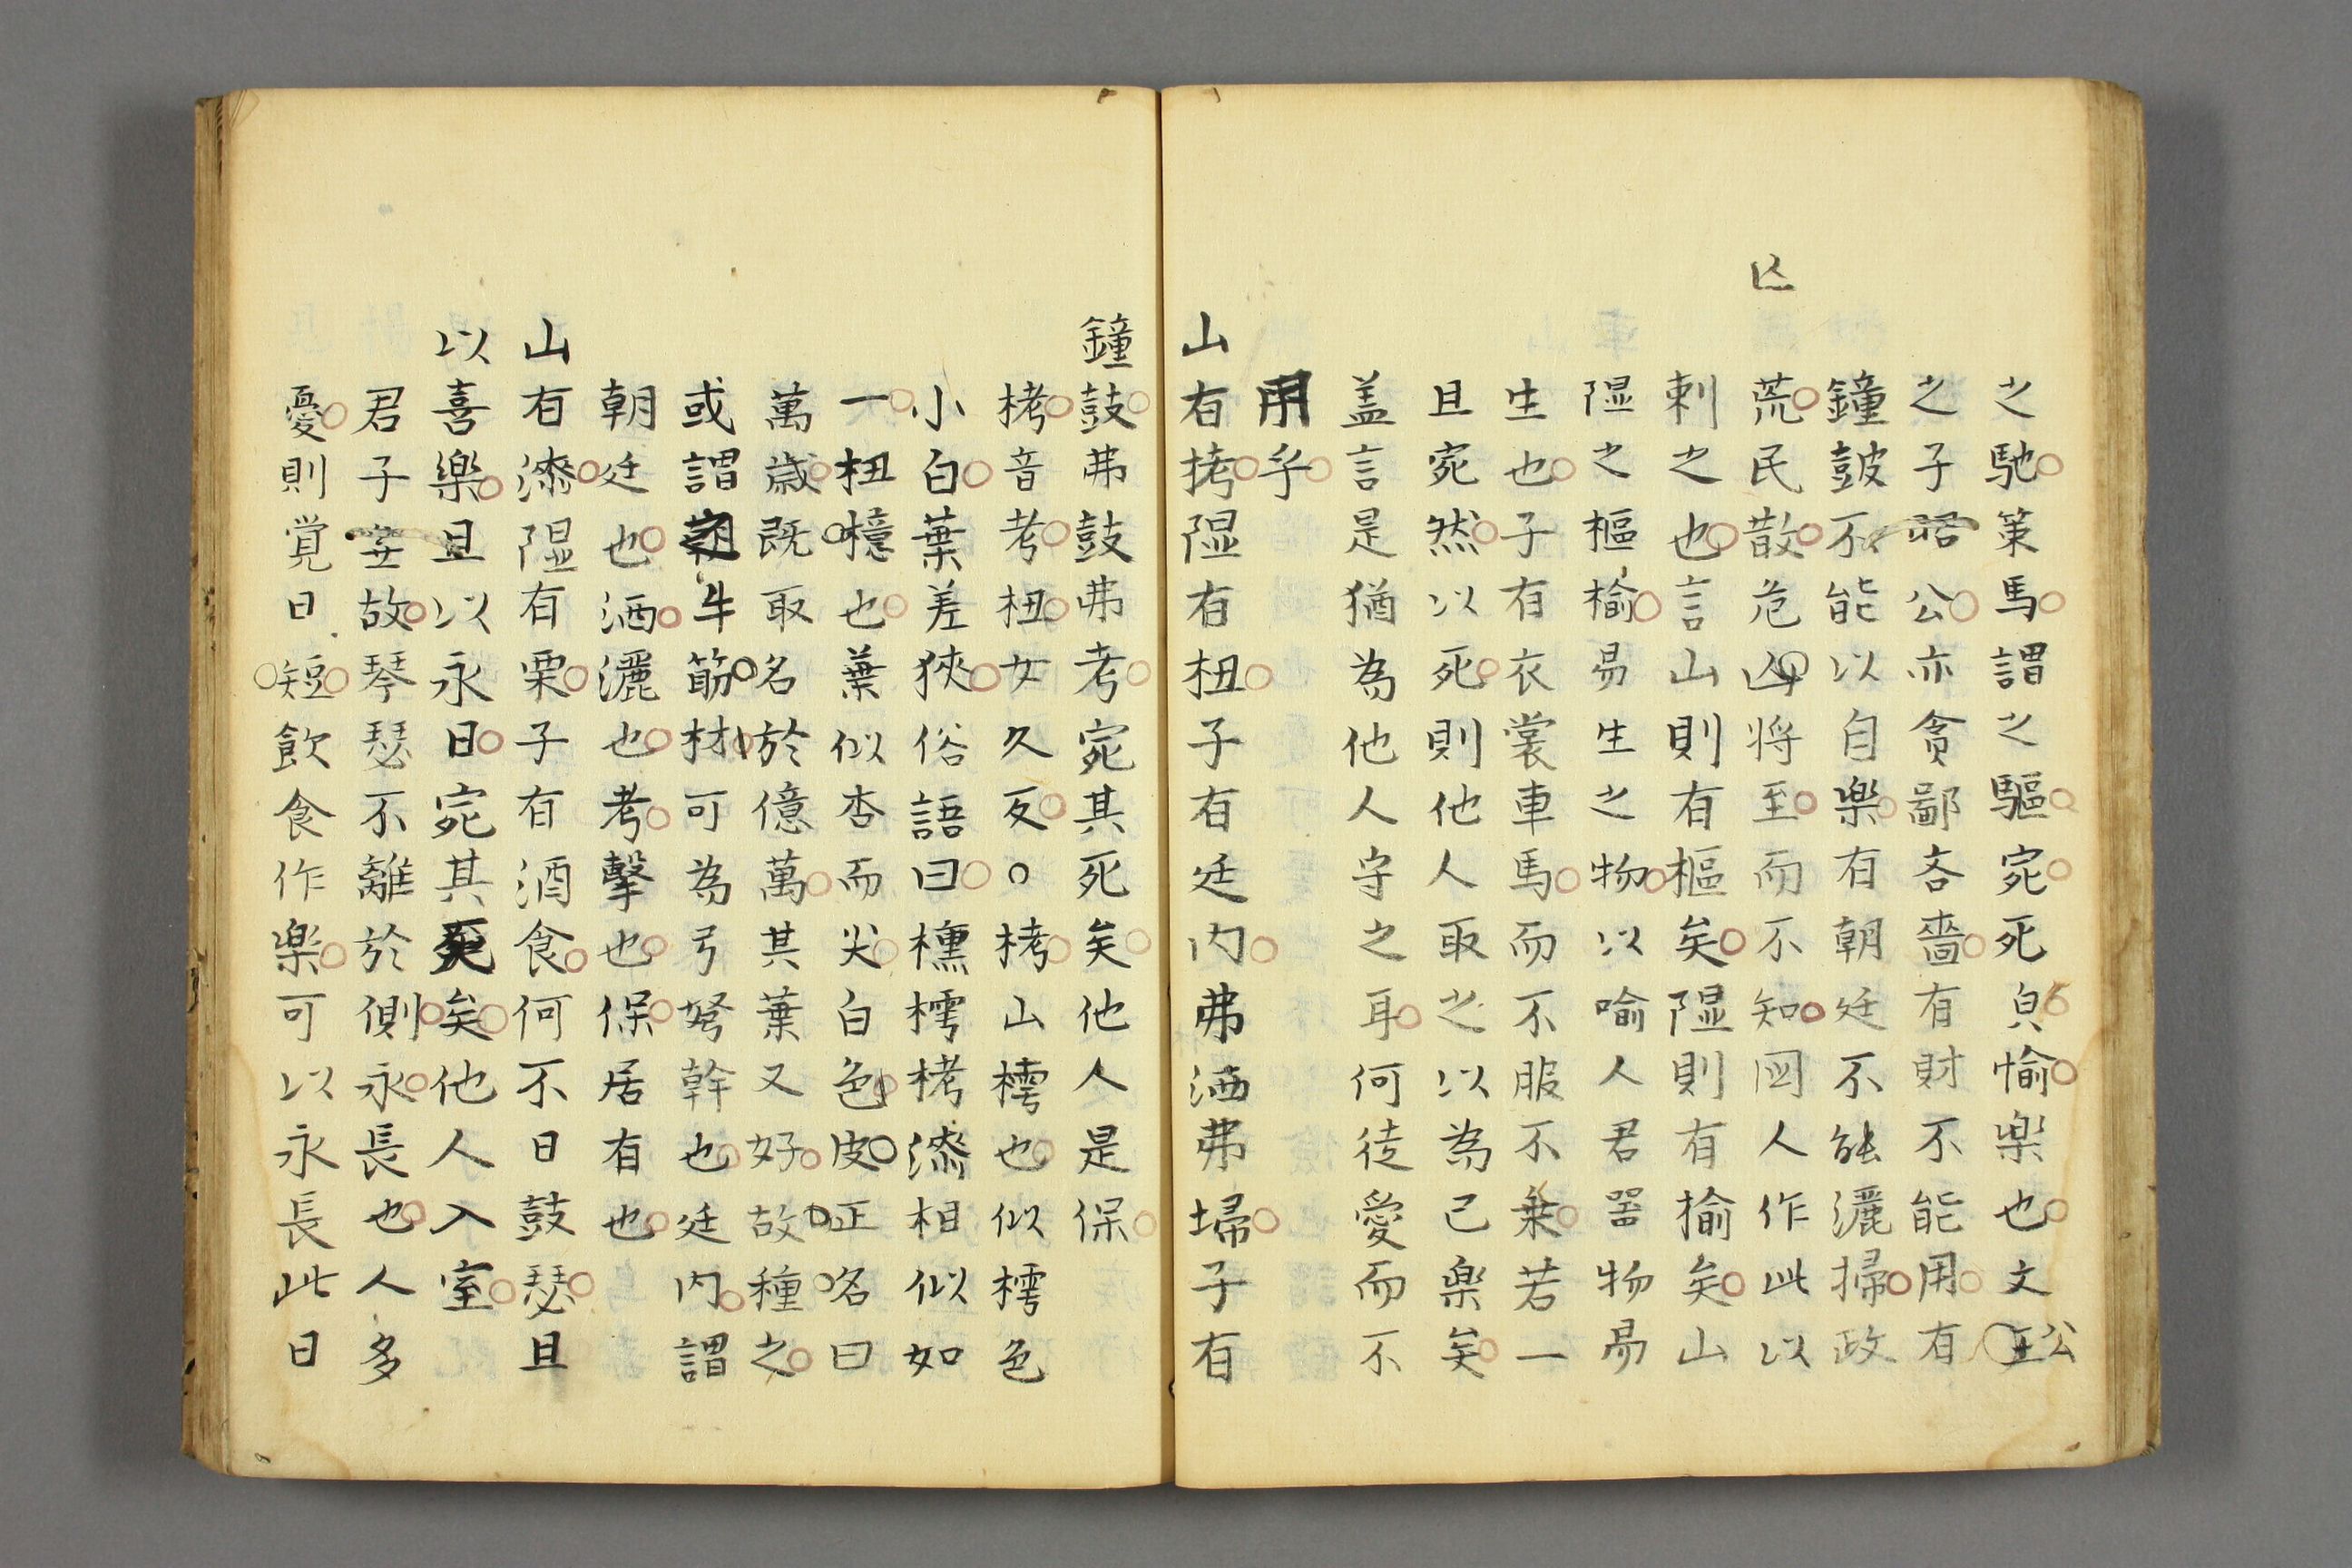 之馳策馬謂之驅宛死皃愉楽也文王公
之子昭公亦貪鄙吝嗇有財不能用有
鐘鼓不能以自楽有朝廷不能灑掃政
荒民散危凶将至而不知国人作此以
刺之也言山則有樞矣隰則有揄矣山
隰之樞榆易生之物以喻人君噐物易
生也子有衣裳車馬而不服不乗若一
且宛然以死則他人取之以為己楽矣
盖言是猶為他人守之耳何徒愛而不
用乎
山有栲隰有杻子有廷内弗洒弗埽子有
鐘鼓弗鼓弗考宛其死矣他人是保
栲音考杻女久反○栲山樗也似樗色
小白葉差狹俗語曰櫄樗栲漆相似如
一杻檍也葉似杏而尖白色皮正名曰
萬歳既取名於億萬其葉又好故種之
或謂牛筋材可為弓弩幹也廷内謂
朝廷也洒灑也考擊也保居有也
山有漆隰有栗子有酒食何不日鼓瑟且
以喜樂且以永日宛其死矣他人入室
君子無故琴瑟不離於側永長也人多
憂則覚日短飲食作楽可以永長此日